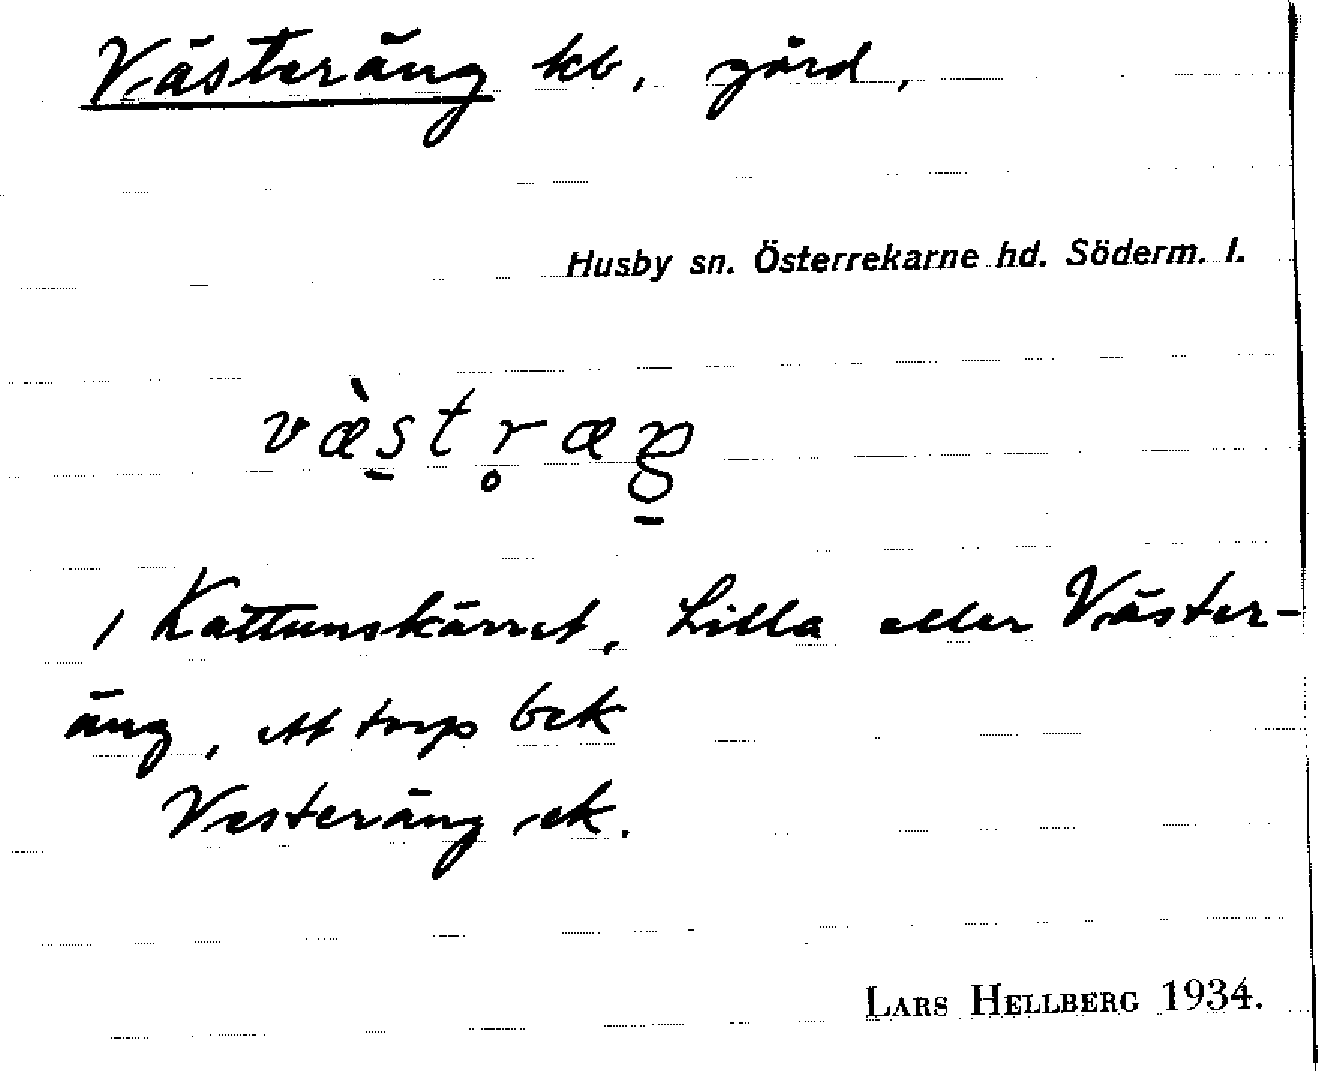 Västeräng kb, gård,
Husby sn. Österrekarne hd. Söderm. l.
væ̀str̥æŋ
/ Kattunskärret, Lilla eller Väster-
äng, ett torp bek
Vesteräng ek.
LARS HELLBERG 1934.